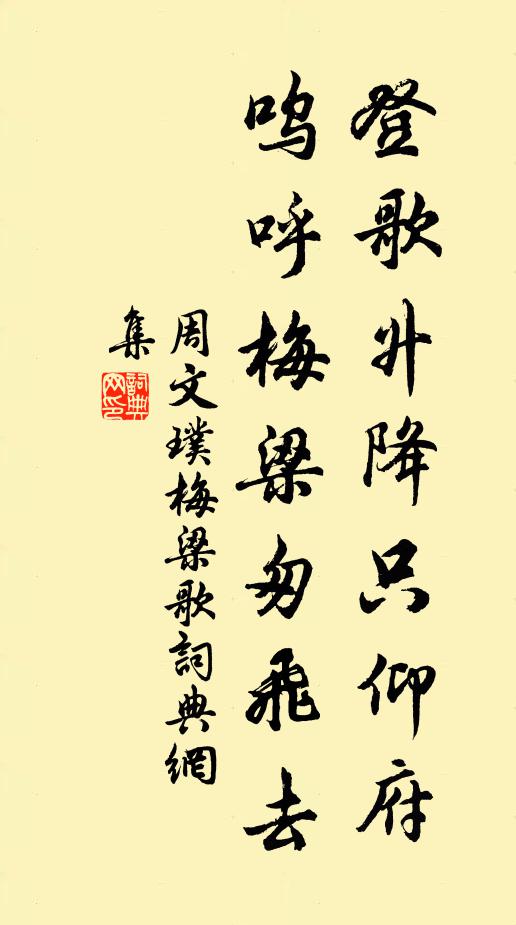 登歌升降只仰府
嗚呼梅梁勿飛去
周文璞梅梁歌詞典網
集
詞典
网印